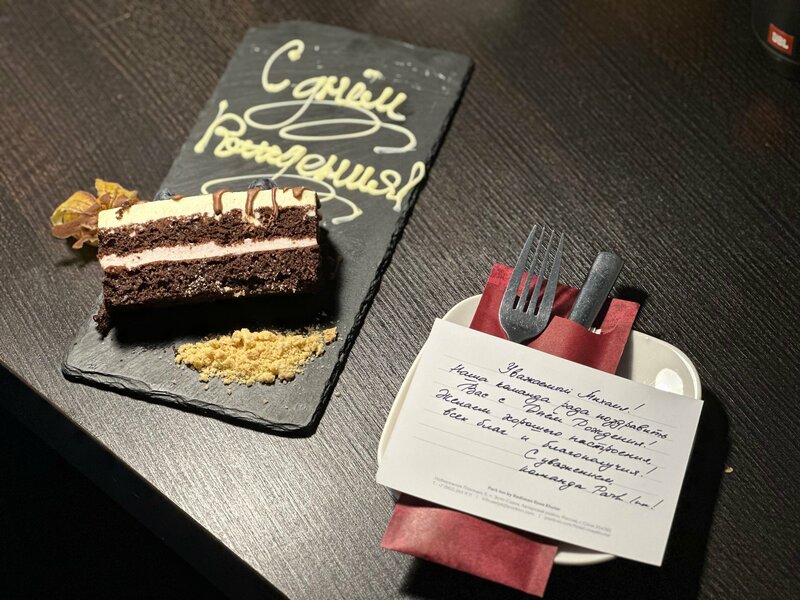 С днём
Рождения!
JBL
Уважаемый Михаил!
Наша команда рада поздравить
Вас с Днём Рождения!
Желаем хорошего настроения,
всех благ и благополучия!
С уважением,
команда Park Inn!
Park Inn by Radisson Rosa Khutor